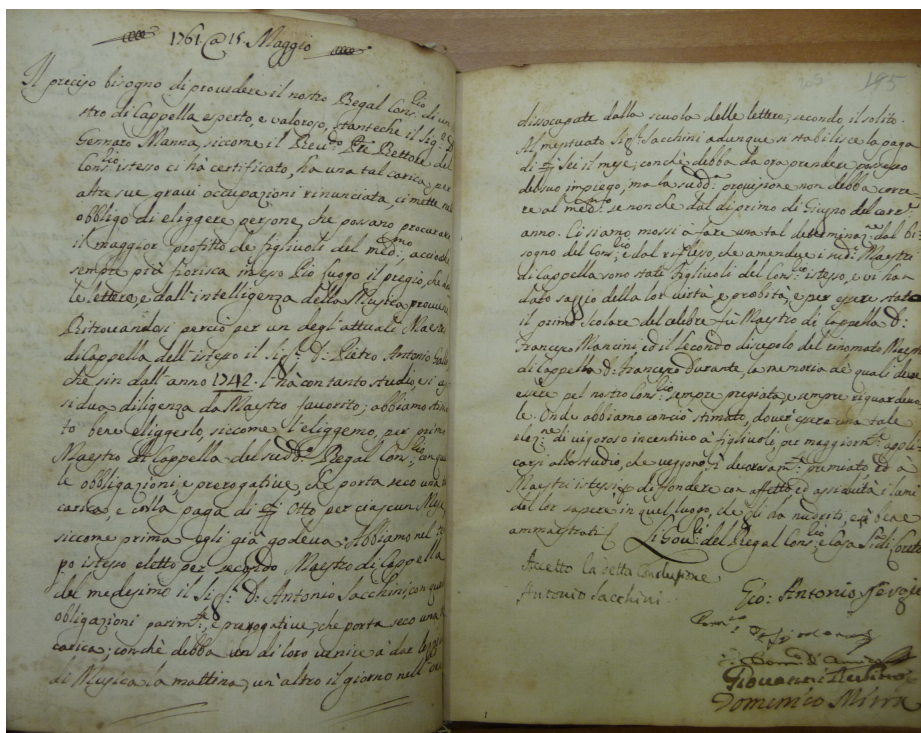 1761 @ 15 Maggio
Il preciso bisogno di provedere il nostro Regal Cons.rio di un
stro di Cappella esperto, e valoroso, stanteche il Sig.r D.
Gennaro Manna, siccome il Rev.do Pre Rettore del
Cons.rio istesso ci hà certificato, ha una tal carica, per
altre sue gravi occupazioni rinunciata, ci mette nell
obbligo di eliggere persone, che possano procurare
il maggior profitto de' figliuoli del med.mo, acciochè
sempre più fiorisca in esso Pio luogo il pregio, che da
le lettere, e dall'intelligenza della Musica proviene
Ritrovandosi perciò per un degl'attuali Maestri
di Cappella dell'istesso il Sig.r D. Pietro Antonio Gallo
che sin dall'anno 1742. l'hà con tanto studio, e si as
sidua diligenza da Maestro favorito; abbiamo stima
to bene eliggerlo, siccome l'eliggemo, per primo
Maestro di Cappella del sud.o Regal Cons.rio con quel
le obbligazioni, e prerogative, che porta seco una tal
carica, e colla paga di Otto per ciascun Mese
siccome prima egli già godeva. Abbiamo nel tem
po istesso eletto per secondo Maestro di Cappella
del medesimo il Sig.r D. Antonio Sacchini, con quell
obbligazioni parim.te, e prerogative, che porta seco una tal
carica; conchè debba un di loro venire a dar lezione
di Musica la mattina, un'altro il giorno nell'
195
dissocapate dalla scuola delle lettere, secondo il solito.
Al mentuato Sig.r Sacchini adunque si stabilisce la paga
di Sei il mese, conchè debba da ora prendere possesso
del suo impiego, ma la sudd.a provisione non debba corre
re al med.mo se nonche dal dì primo di Giugno del corr.te
anno. Ci siamo mossi a fare una tal determinaz.ne dal bi
sogno del Cons.rio, e dal riflesso, che amendue i sud.i Maestri
di Cappella sono stati figliuoli del Cons.rio istesso, e vi han
dato saggio della lor virtù, e probità, e per essere stato
il primo Scolare del celebre fù Maestro di Cappella D.
Francesco Mancini, ed il Secondo discepolo del rinomato Maestro
di Cappella D. Francesco Durante, la memoria de' quali deve
essere pel nostro Cons.rio sempre pregiata, e sempre riguardevo
le. Onde abbiamo conciò stimato, dover essere una tale
elez.ne di vigoroso incentivo à figliuoli, per maggiorm.te appli
carsi allo studio, che veggono sì decorosam.te premiato, ed a
Maestri istessi, di fondere con affetto, ed assiduità i lumi
del lor sapere in quel luogo, che gli ha nudriti, e sì bene
ammaestrati
Li Gov.ri del Regal Cons.rio, e Casa S.ta di Loreto
Accetto la detta Conclusione
Antonio Sacchini
Gio: Antonio
Giovanni
Domenico Mirra